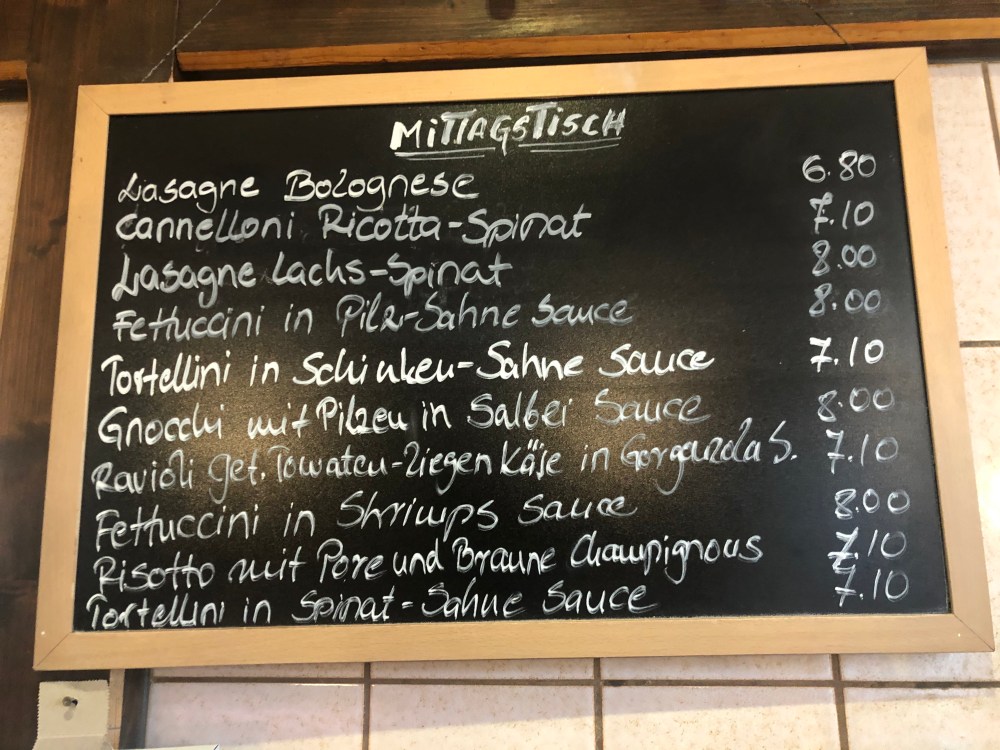 MITTAGSTISCH
Lasagne Bolognese 6.80
Cannelloni Ricotta-Spinat 7.10
Lasagne Lachs-Spinat 8.00
Fettuccini in Pilz-Sahne Sauce 8.00
Tortellini in Schinken-Sahne Sauce 7.10
Gnocchi mit Pilzen in Salbei Sauce 8.00
Ravioli get. Tomaten-Ziegen Käse in Gorgonzola S. 7.10
Fettuccini in Shrimps Sauce 8.00
Risotto mit Pore und Braune Champignons 7.10
Tortellini in Spinat-Sahne Sauce 7.10